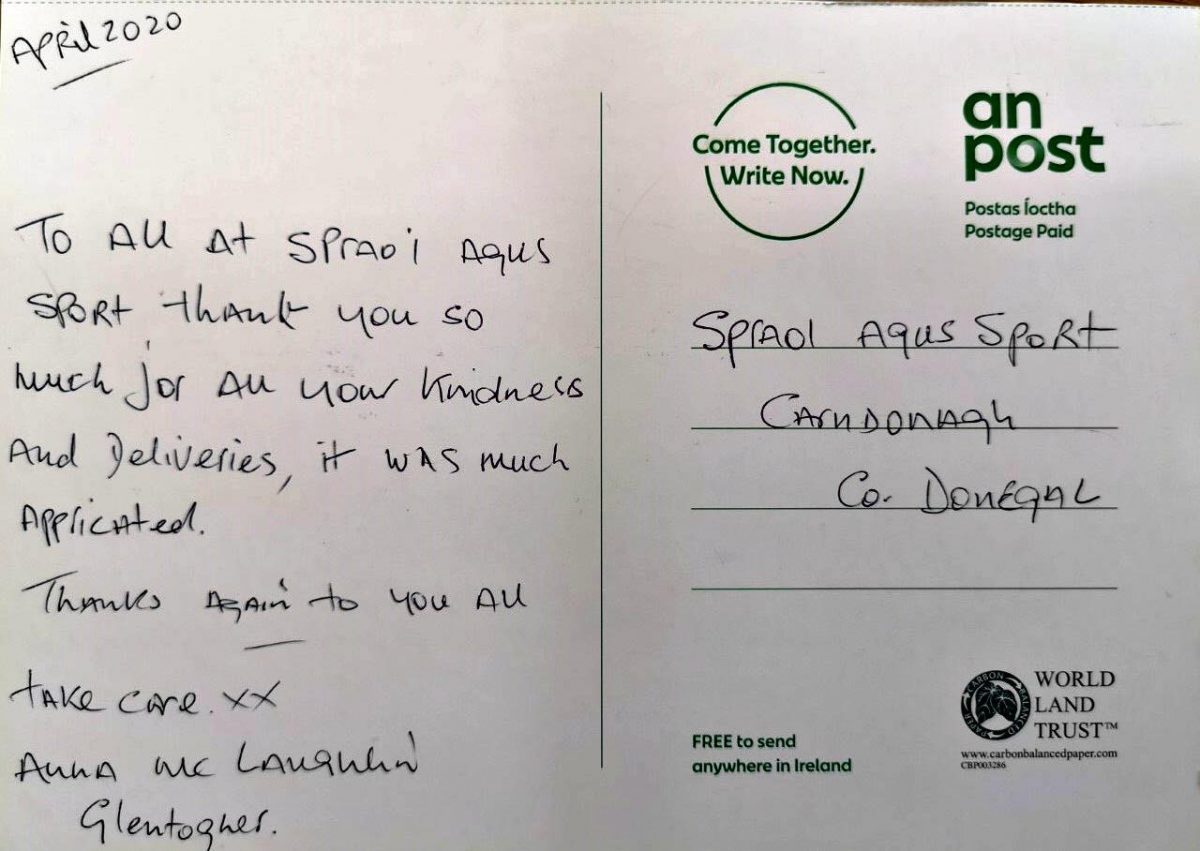 April 2020
To All At Spraoi Agus
Sport thank you so
much for All your Kindness
And Deliveries, it was much
Applicated.
Thanks Again to you All
take care. xx
Anna Mc Laughlin
Glentogher.
Come Together.
Write Now.
an
post
Postas Íoctha
Postage Paid
Spraoi Agus Sport
Carndonagh
Co. Donegal
FREE to send
anywhere in Ireland
CARBON BALANCED PAPER
WORLD
LAND
TRUST™
www.carbonbalancedpaper.com
CBP003286